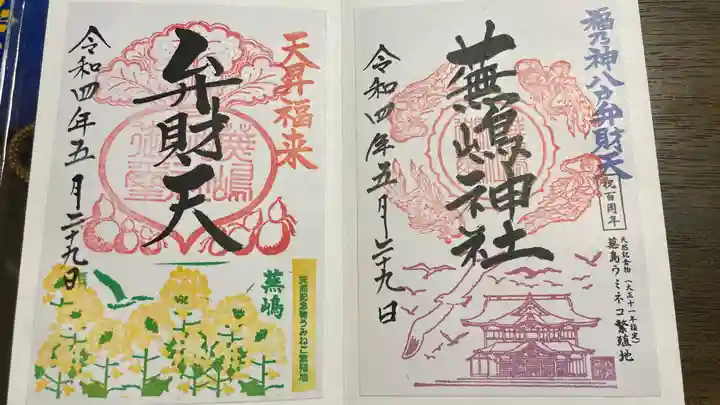 天昇福来
弁財天
令和四年五月二十九日
蕪嶋
天然記念物うみねこ繁殖地
福乃神八方弁財天
祝百周年
天然記念物(大正十一年指定)
蕪島ウミネコ繁殖地
蕪嶋神社
令和四年五月二十九日